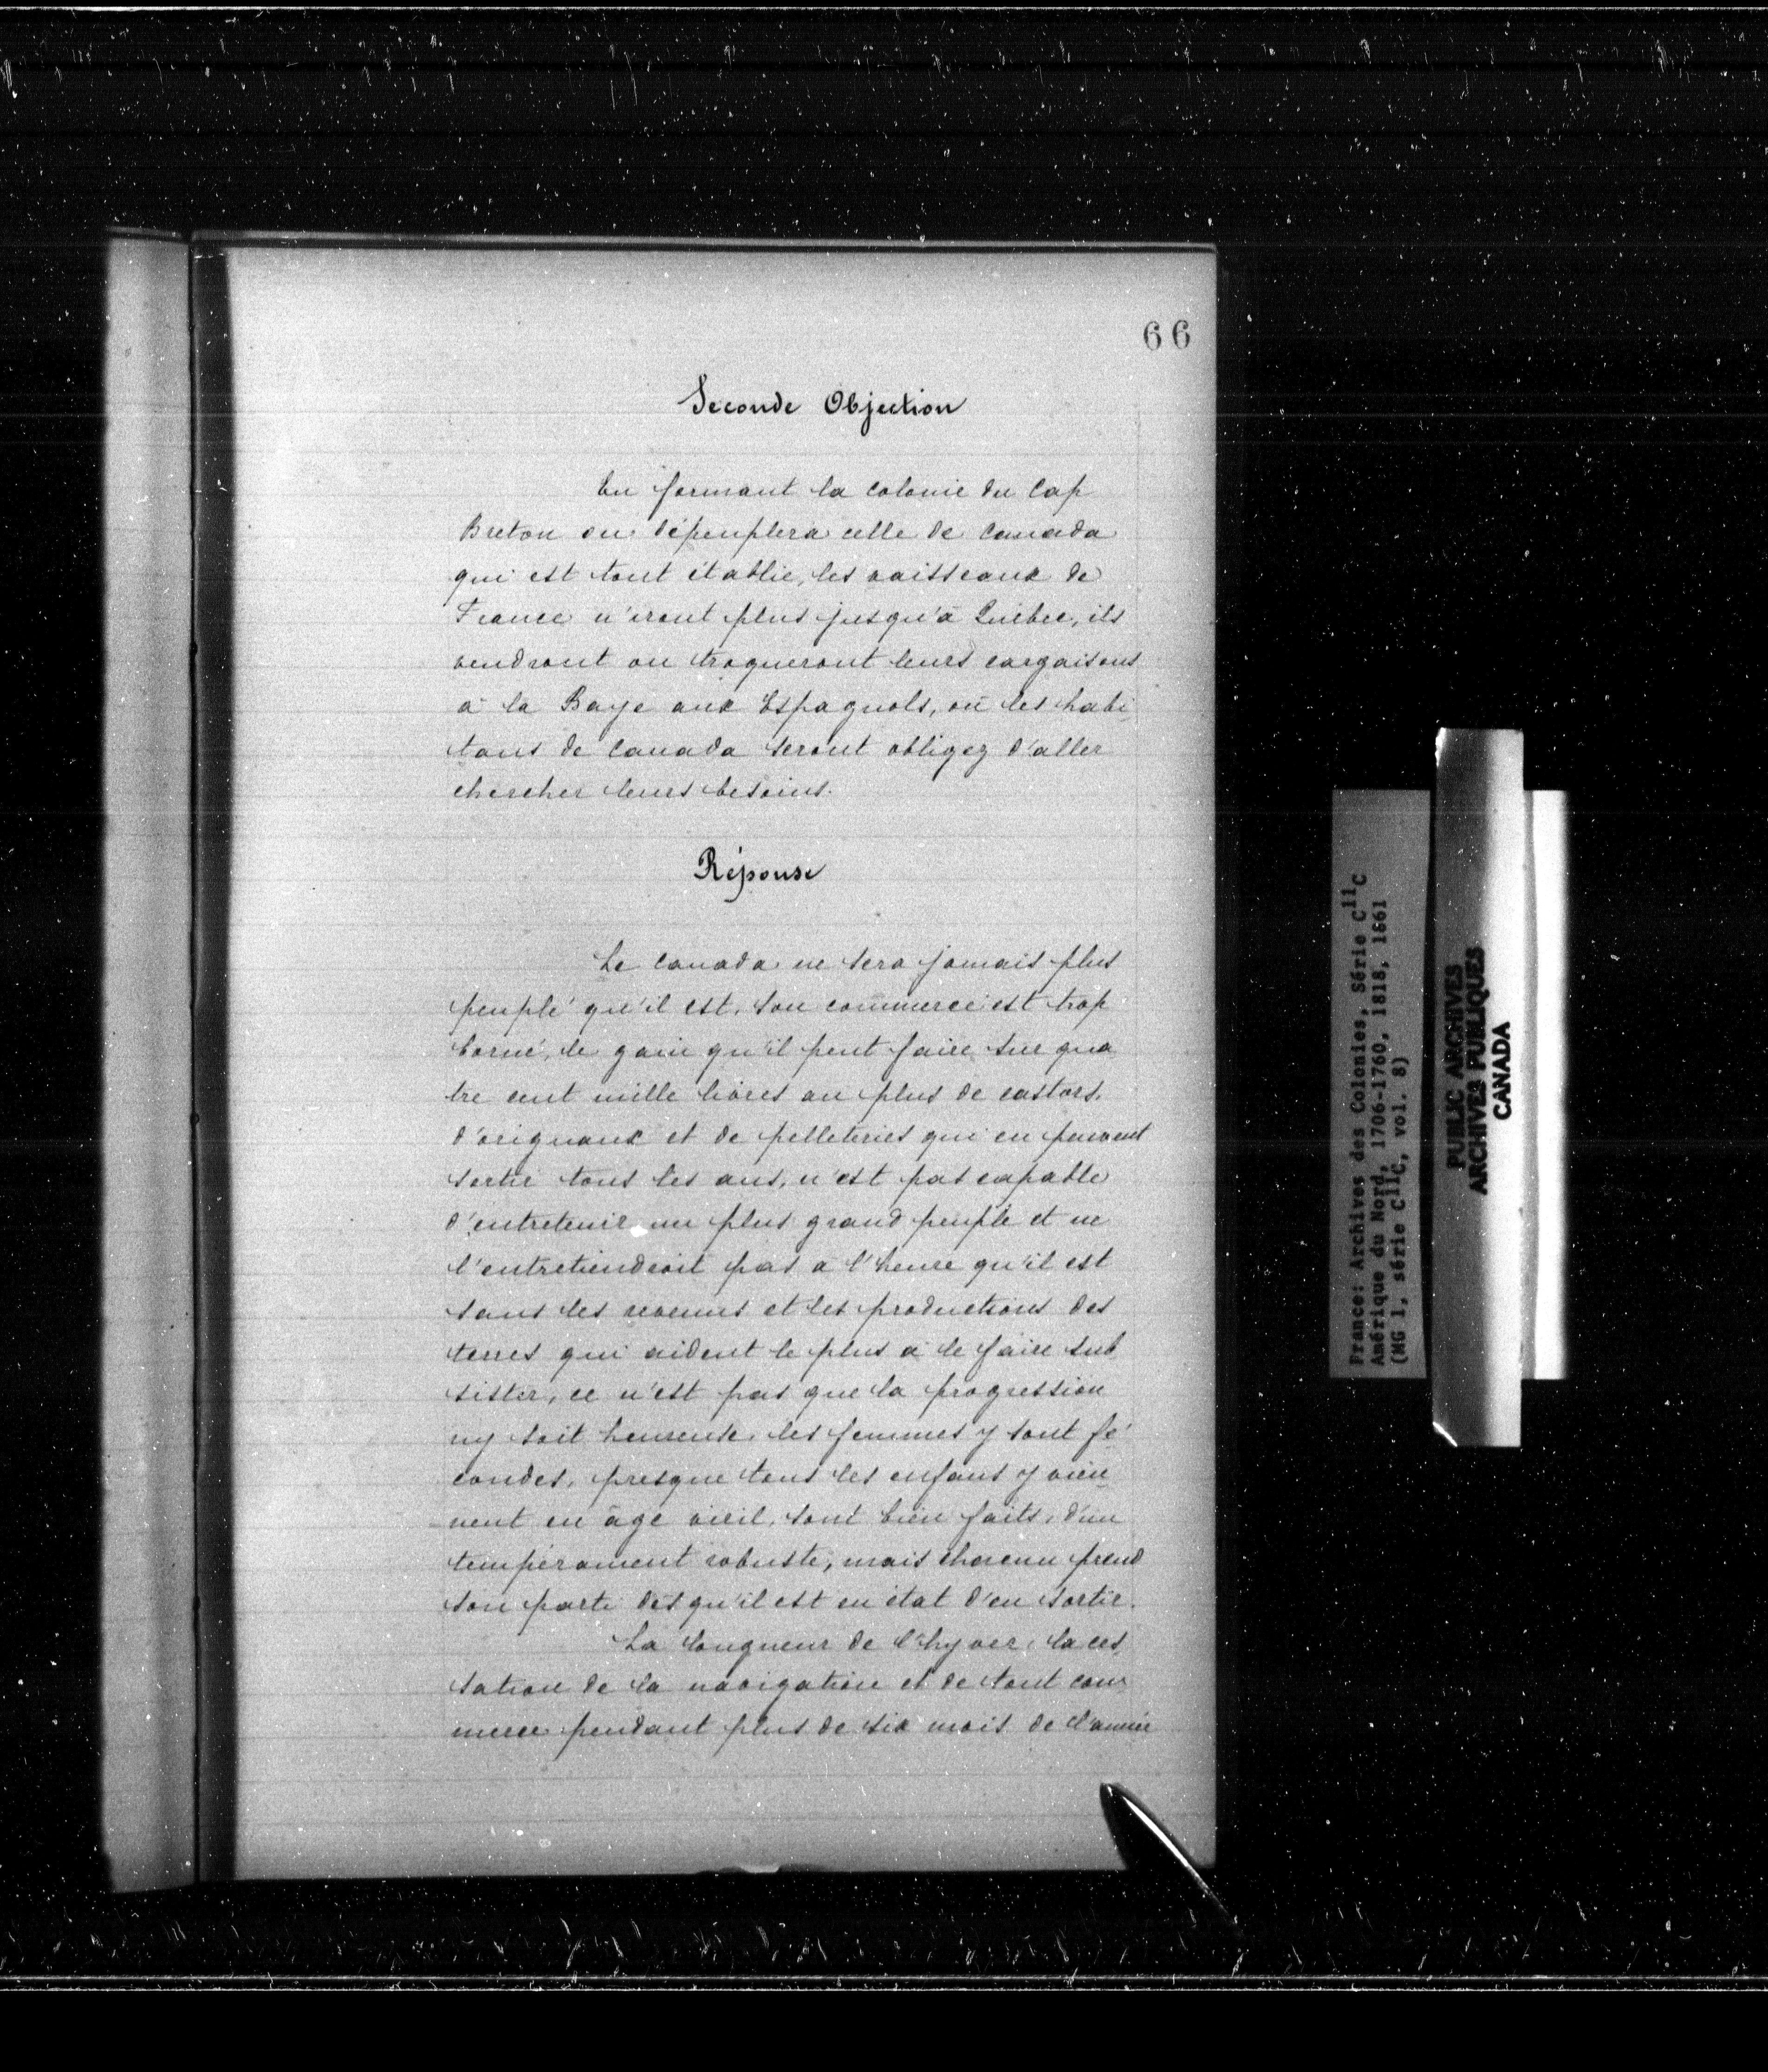 66
Seconde Objection
En formant la colonie du Cap
Breton on dépeuplera celle de Canada
qui est tout établie, les vaisseaux de
France n'iront plus jusqu'à Québec, ils
vendront ou troqueront leurs cargaisons
à la Baye aux Espagnols, où les habi
tans de Canada seront obligez d'aller
chercher leurs besoins.
Réponse
Le Canada ne sera jamais plus
peuplé qu'il est, son commerce est trop
borné, le gain qu'il peut faire sur qua
tre cent mille livres au plus de castors,
d'orignaux et de pelleteries qui en peuvent
sortir tous les ans, n'est pas capable
d'entretenir un plus grand peuple et ne
l'entretiendroit pas à l'heure qu'il est
sans les revenus et les productions des
terres qui aident le plus à le faire sub
sister, ce n'est pas que la progression
ny soit heureuse, les femmes y sont fé
condes, presque tous les enfans y vien
nent en âge viril, sont bien faits, d'un
tempérament robuste, mais chacun prend
son parti dès qu'il est en état d'en sortir.
La longueur de l'hyver, la ces
sation de la navigation et de tout com
merce pendant plus de six mois de l'année
France: Archives des Colonies, Série C11C
Amérique du Nord, 1706-1760, 1818, 1661
(MG 1, série C11C, vol. 8)
PUBLIC ARCHIVES
ARCHIVES PUBLIQUES
CANADA